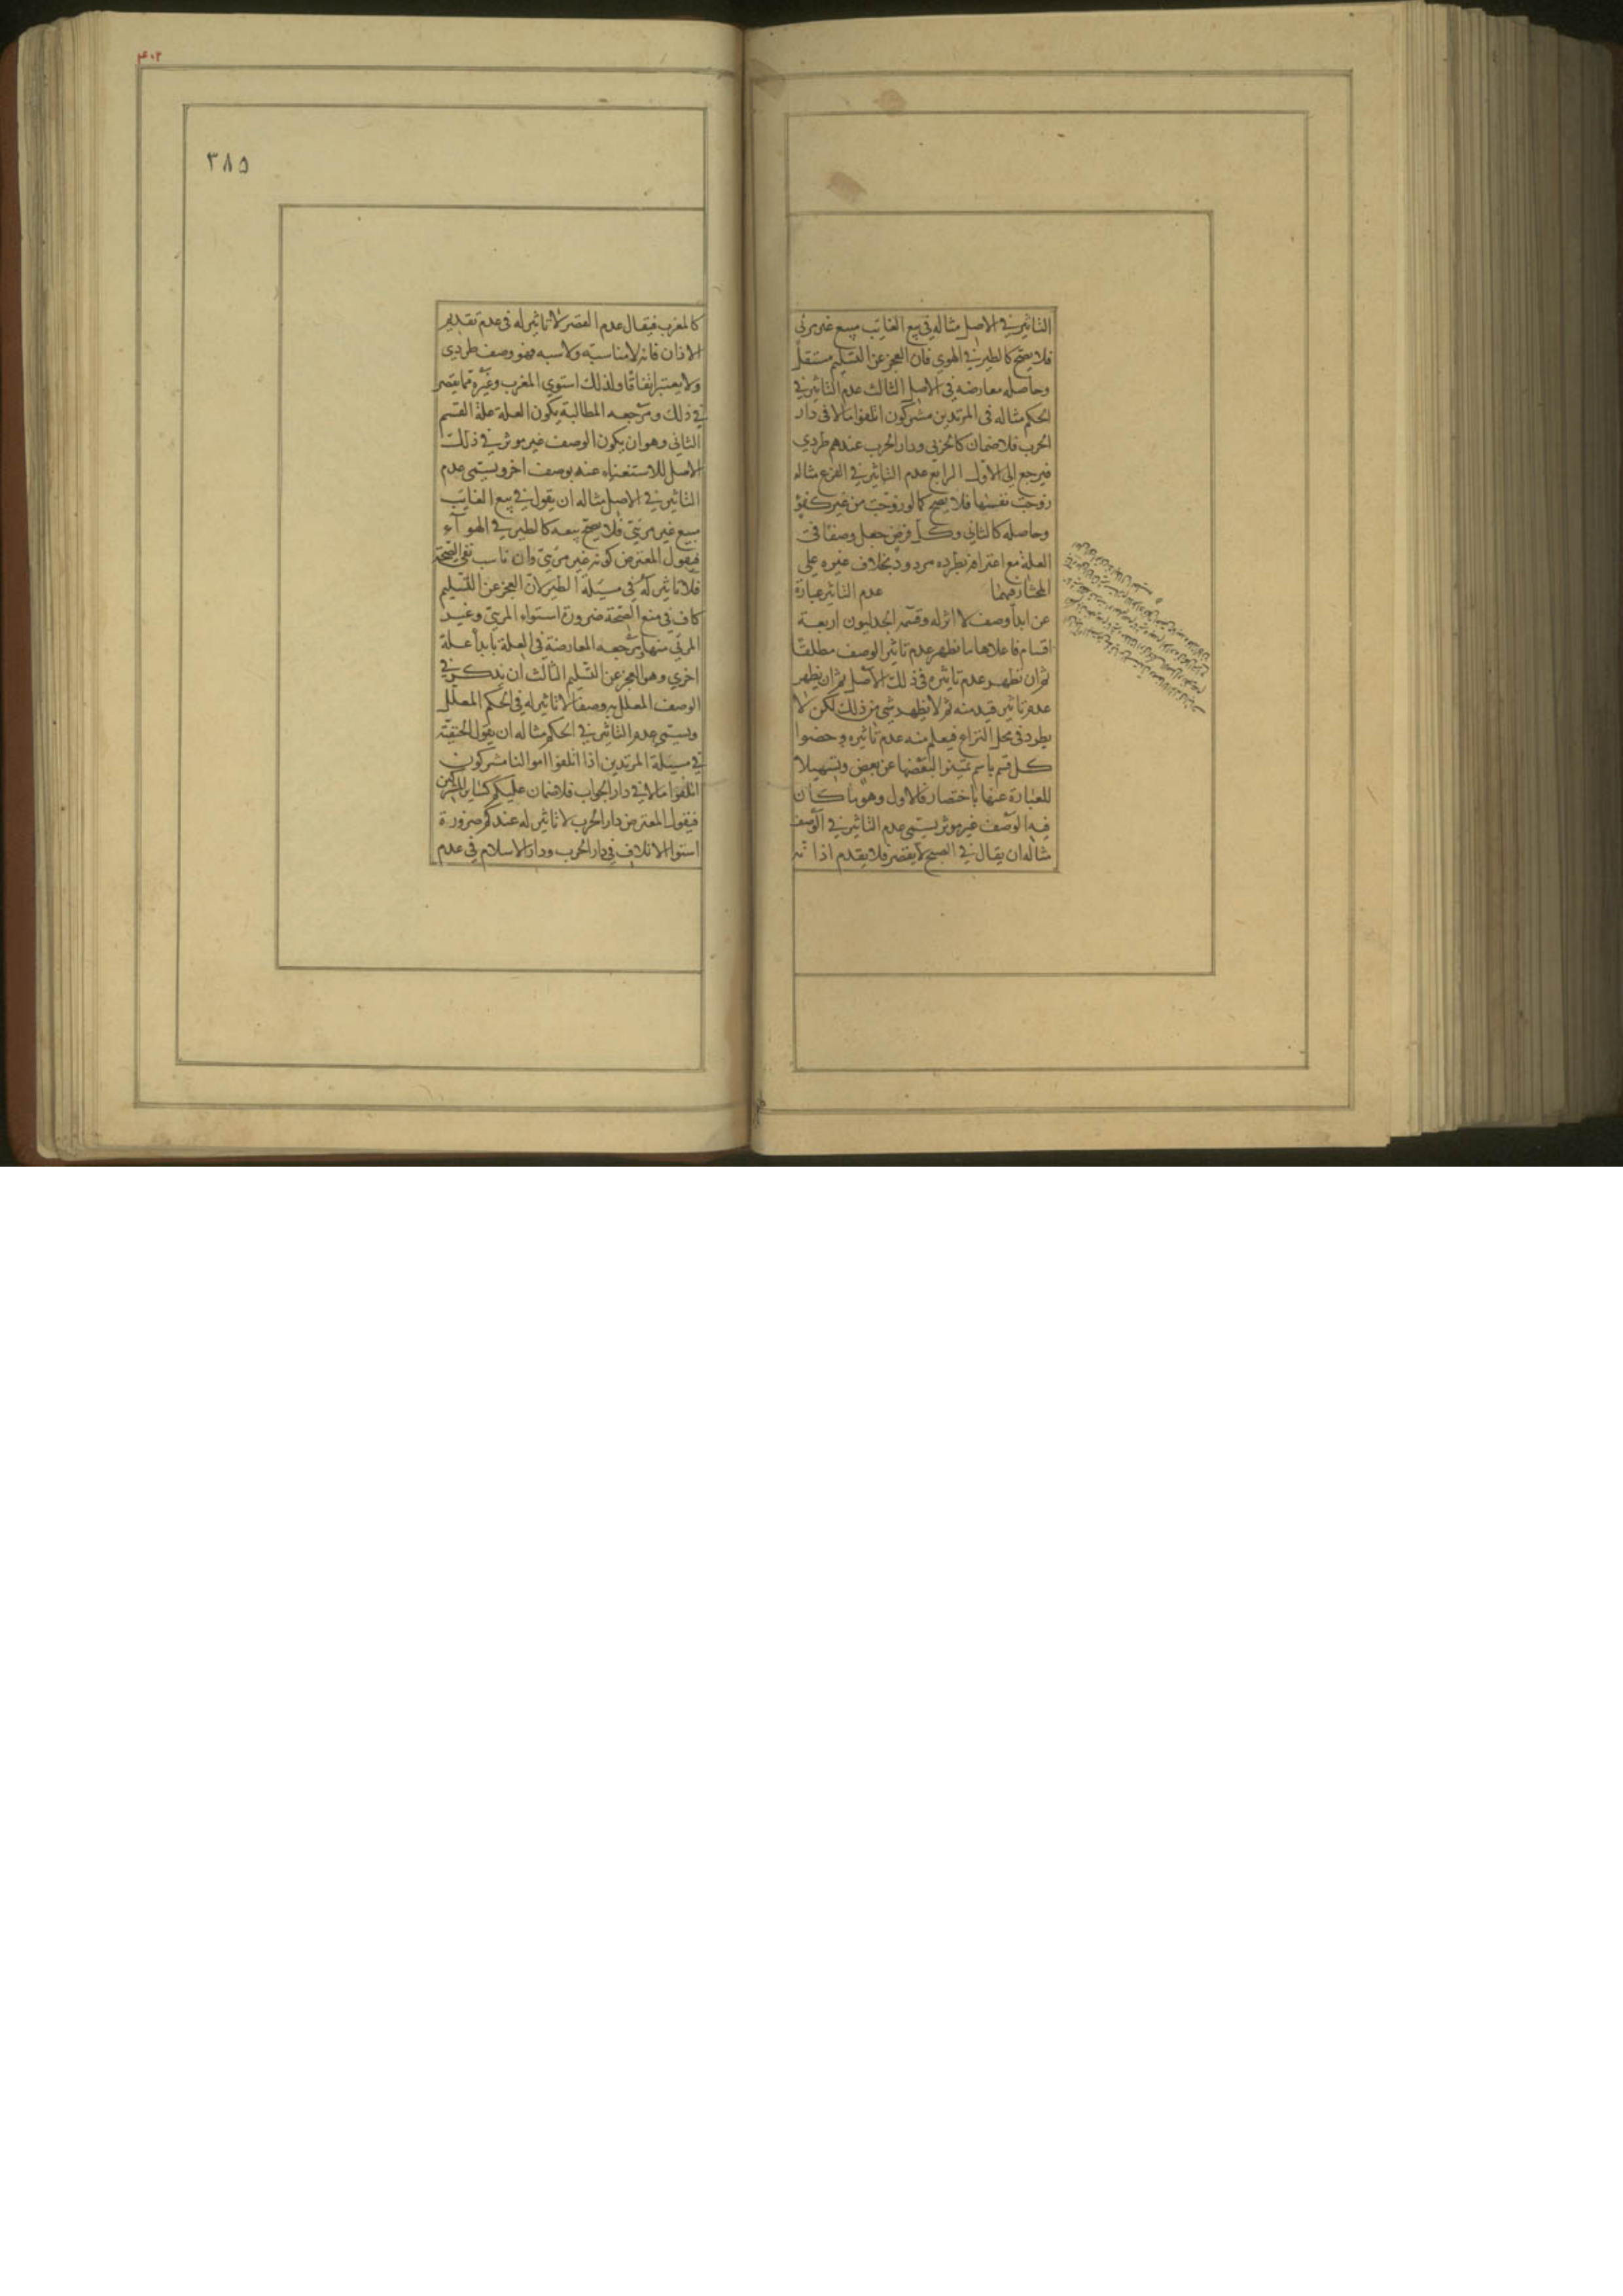 التاثير في الاصل مثاله في بيع الغايب مبيع غير مرئي
فلا يصح كالطير في الهوي فان العجز عن التسليم مستقل
وحاصله معارضه في الاصل الثالث عدم التاثير في
الحكم مثاله في المرتدين مشركون اتلفوا مالا في دار
الحرب فلا ضمان كالحربي ودار الحرب عندهم طردي
فيرجع الي الاول الرابع عدم التاثير في الفرع مثاله
زوجت نفسها فلا يصح كما لو زوجت من غير كفؤ
وحاصله كالثاني وكل فرض جعل وصفا في
العلة مع اعترافه بطرده مردود بخلاف غيره علي
المختار فيهما عدم التاثير عبارة
عن ابدا وصف لا اثر له وقسمه الجدليون اربعة
اقسام فاعلاها ما يظهر عدم تاثير الوصف مطلقا
ثم ان يظهر عدم تاثيره في ذلك الاصل ثم ان يظهر
عدم تاثير قيد منه ثم لا يظهر شي من ذلك لكن لا
يطرد في محل النزاع فيعلم منه عدم تاثيره وخصوا
كل قسم باسم تمييزا لبعضها عن بعض وتسهيلا
للعبارة عنها باختصار فالاول وهو ما كان
فيه الوصف غير موثر يسمي عدم التاثير في الوصف
مثاله ان يقال في الصبح لا يقصر فلا يقدم اذانه
٤٠٢
٣٨٥
كالمغرب فيقال عدم القصر لا تاثير له في عدم تقديم
الاذان فانه لا مناسبة ولا شبه فهو وصف طردي
ولا يعتبر اتفاقا ولذلك استوي المغرب وغيره مما يقصر
في ذلك ومرجعه المطالبة بكون العلة علة القسم
الثاني وهو ان يكون الوصف غير موثر في ذلك
الاصل للاستغناء عنه بوصف اخر ويسمي عدم
التاثير في الاصل مثاله ان يقول في بيع الغايب
مبيع غير مرئي فلا يصح بيعه كالطير في الهوآء
فيقول المعترض كونه غير مرئي وان ناسب نفي الصحة
فلا تاثير له في مسئلة الطير لان العجز عن التسليم
كاف في منع الصحة ضرورة استواء المرئي وغير
المرئي منها ومرجعه المعارضة في العلة بابدا علة
اخري وهو العجز عن التسليم الثالث ان يذكر في
الوصف المعلل به وصفا لا تاثير له في الحكم المعلل
ويسمي عدم التاثير في الحكم مثاله ان يقول الحنفية
في مسئلة المرتدين اذا اتلفوا اموالنا مشركون
اتلفوا مالا في دار الحرب فلا ضمان عليكم كساير المشركين
فيقول المعترض دار الحرب لا تاثير له عندكم ضرورة
استوا الاتلاف في دار الحرب ودار الاسلام في عدم